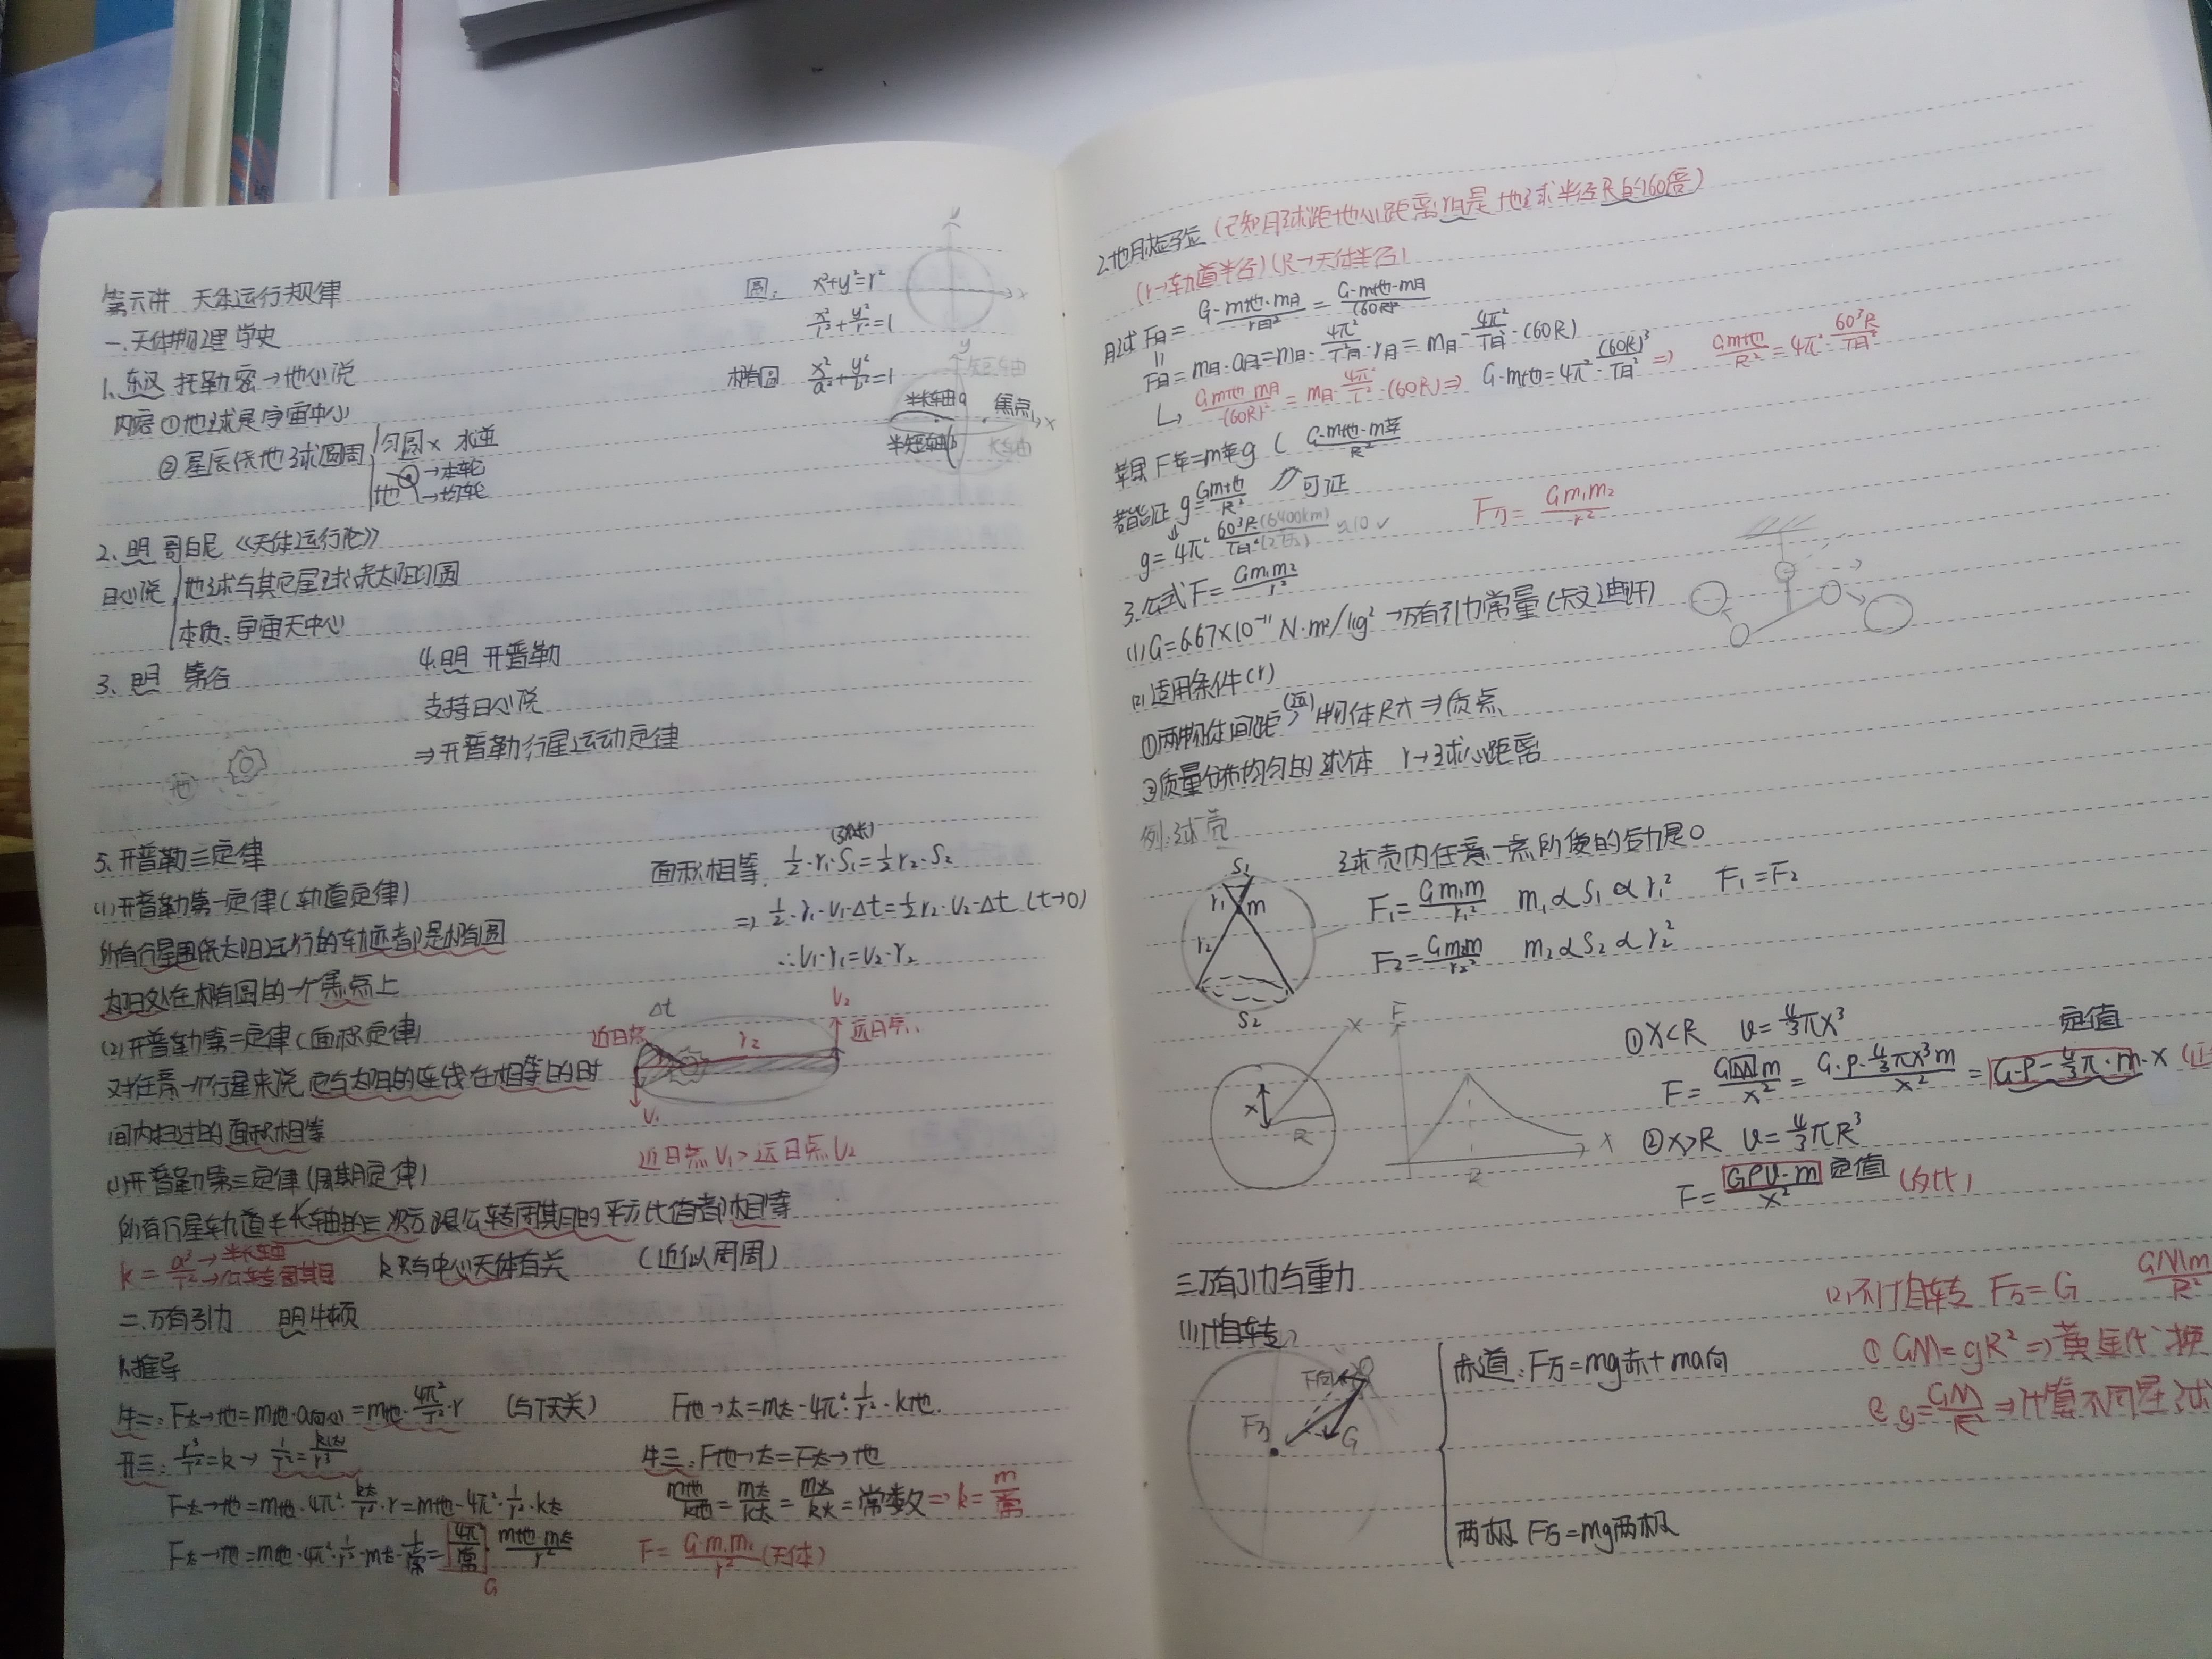 第六讲 天体运行规律
一.天体物理学史
1.东汉 托勒密→地心说
内容①地球是宇宙中心
②星辰绕地球圆周
匀圆× 水逆
→本轮
地 →均轮
圆: x²+y²=r²
x²/r²+y²/r²=1
椭圆 x²/a²+y²/b²=1
y
x
y
短轴
半长轴a 焦点 x
半短轴b 长轴
2.明 哥白尼《天体运行论》
日心说 地球与其它星球绕太阳匀圆
本质:宇宙无中心
3.明 第谷
4.明 开普勒
支持日心说
⇒开普勒行星运动定律
地
5.开普勒三定律
(1)开普勒第一定律(轨道定律)
所有行星围绕太阳运行的轨迹都是椭圆
太阳处在椭圆的一个焦点上
(2)开普勒第二定律(面积定律)
对任意一个行星来说,它与太阳的连线在相等的时
间内扫过的面积相等
面积相等. ½·r₁·S₁=½r₂·S₂
⇒½·r₁·v₁·Δt=½r₂·v₂·Δt (t→0)
∴v₁·r₁=v₂·r₂
Δt
近日点 r₂ v₂ 远日点
v₁
近日点v₁>远日点v₂
开普勒第三定律(周期定律)
所有行星轨道半长轴的三次方跟公转周期的平方比值都相等
k=a³/T² →半长轴 →公转周期 k只与中心天体有关 (近似圆周)
二.万有引力 明 牛顿
1.推导
牛二:F太→地=m地·a向心=m地·4π²/T²·r (与T无关)
开三:r³/T²=k→1/T²=k太/r³
F太→地=m地·4π²·k太/r³·r=m地·4π²·1/r²·k太
F太→地=m地·4π²·1/r²·m太·1/常=4π²/常·m地·m太/r²
G
F地→太=m太·4π²·1/r²·k地.
牛三:F地→太=F太→地
m地/k地=m太/k太=m天/k天=常数⇒k=m/常
F=G·m₁m₂/r²(天体)
2.地月检验(已知月球距地心距离r月是地球半径R的60倍)
(r→轨道半径)(R→天体半径)
月球F月=G·m地·m月/r月²=G·m地·m月/(60R)²
F月=m月·a月=m月·4π²/T月²·r月=m月·4π²/T月²·(60R)
↳Gm地m月/(60R)²=m月·4π²/T²·(60R)⇒ G·m地=4π²·(60R)³/T月² ⇒ Gm地/R²=4π²·60³R/T月²
苹果F苹=m苹g ( G·m地·m苹/R²
若能证g=Gm地/R² 可证
g=4π²60³R(6400km)/T月² ≈10✓
F万=Gm₁m₂/r²
3.公式F=Gm₁m₂/r²
(1)G=6.67×10⁻¹¹N·m²/kg²→万有引力常量(卡文迪许)
(2)适用条件(r)
①两物体间距(远)>物体尺寸⇒质点
③质量分布均匀的球体 r→球心距离
例:球壳
球壳内任意一点所受的合力是0
S₁
r₁ m
r₂
S₂
F₁=Gm₁m/r₁² m₁∝S₁∝r₁² F₁=F₂
F₂=Gm₂m/r₂² m₂∝S₂∝r₂²
x
x
R
F
R
x
①x<R v=4/3πx³
F=GMm/x²=G·ρ·4/3πx³m/x²=G·ρ·4/3π·m·x
定值
②x>R v=4/3πR³
F=GρV·m/x² 定值
三.万有引力与重力
(1)计自转
F向
F万
G
赤道:F万=mg赤+ma向
两极 F万=mg两极
(2)不计自转 F万=G GMm/R²
①GM=gR²⇒黄金代换
② g=GM/R²⇒计算不同星球